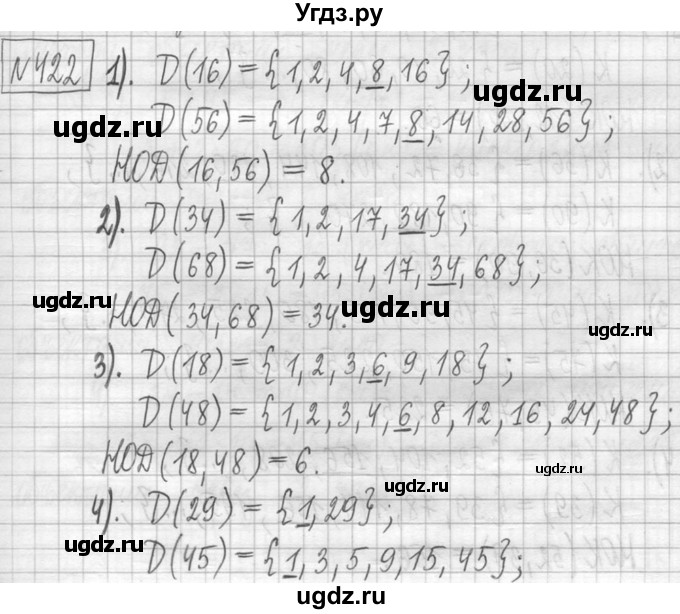 Угдз.ру
N422 1). D(16) = {1, 2, 4, 8, 16};
D(56) = {1, 2, 4, 7, 8, 14, 28, 56};
ugdz.ru
ugdz.ru
НОД(16, 56) = 8.
2). D(34) = {1, 2, 17, 34};
D(68) = {1, 2, 4, 17, 34, 68};
ugdz.ru
ugdz.ru
НОД(34, 68) = 34.
ugdz.ru
3). D(18) = {1, 2, 3, 6, 9, 18};
D(48) = {1, 2, 3, 4, 6, 8, 12, 16, 24, 48};
НОД(18, 48) = 6.
ugdz.ru
ugdz.ru
4). D(29) = {1, 29};
ugdz.ru
ugdz.ru
D(45) = {1, 3, 5, 9, 15, 45};
ugdz.ru